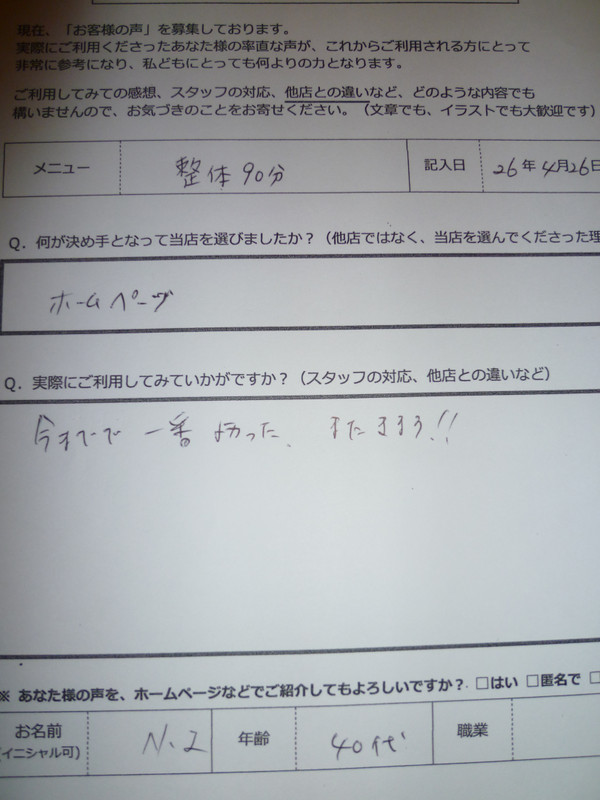 現在、「お客様の声」を募集しております。
実際にご利用くださったあなた様の率直な声が、これからご利用される方にとって
非常に参考になり、私どもにとっても何よりの力となります。
ご利用してみての感想、スタッフの対応、他店との違いなど、どのような内容でも
構いませんので、お気づきのことをお寄せください。（文章でも、イラストでも大歓迎です）
メニュー 整体90分 記入日 26年4月26日
Q．何が決め手となって当店を選びましたか？（他店ではなく、当店を選んでくださった理
ホームページ
Q．実際にご利用してみていかがですか？（スタッフの対応、他店との違いなど）
今までで一番よかった、また
※ あなた様の声を、ホームページなどでご紹介してもよろしいですか？ □はい □匿名で □
お名前 N.I 年齢 40代 職業
(イニシャル可)